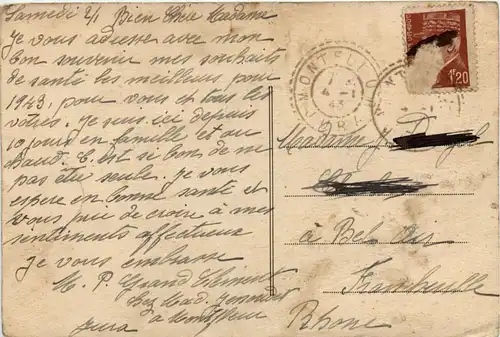 Samedi 2/1 Bien Chère Madame
Je vous adresse avec mon
bon souvenir mes souhaits
de santé les meilleurs pour
1943, pour vous et tous les
vôtres. Je suis ici depuis
10 jours en famille et au
chaud. C. est si bon de ne
pas être seule. Je vous
espère en bonne santé et
vous prie de croire à mes
sentiments affectueux
je vous embrasse
M. P. Grand Clément
chez Mad.
à
Jura
MONTFLEUR
4 - 1
43
JURA
1F20
Madame
à Bel Air
Rhône